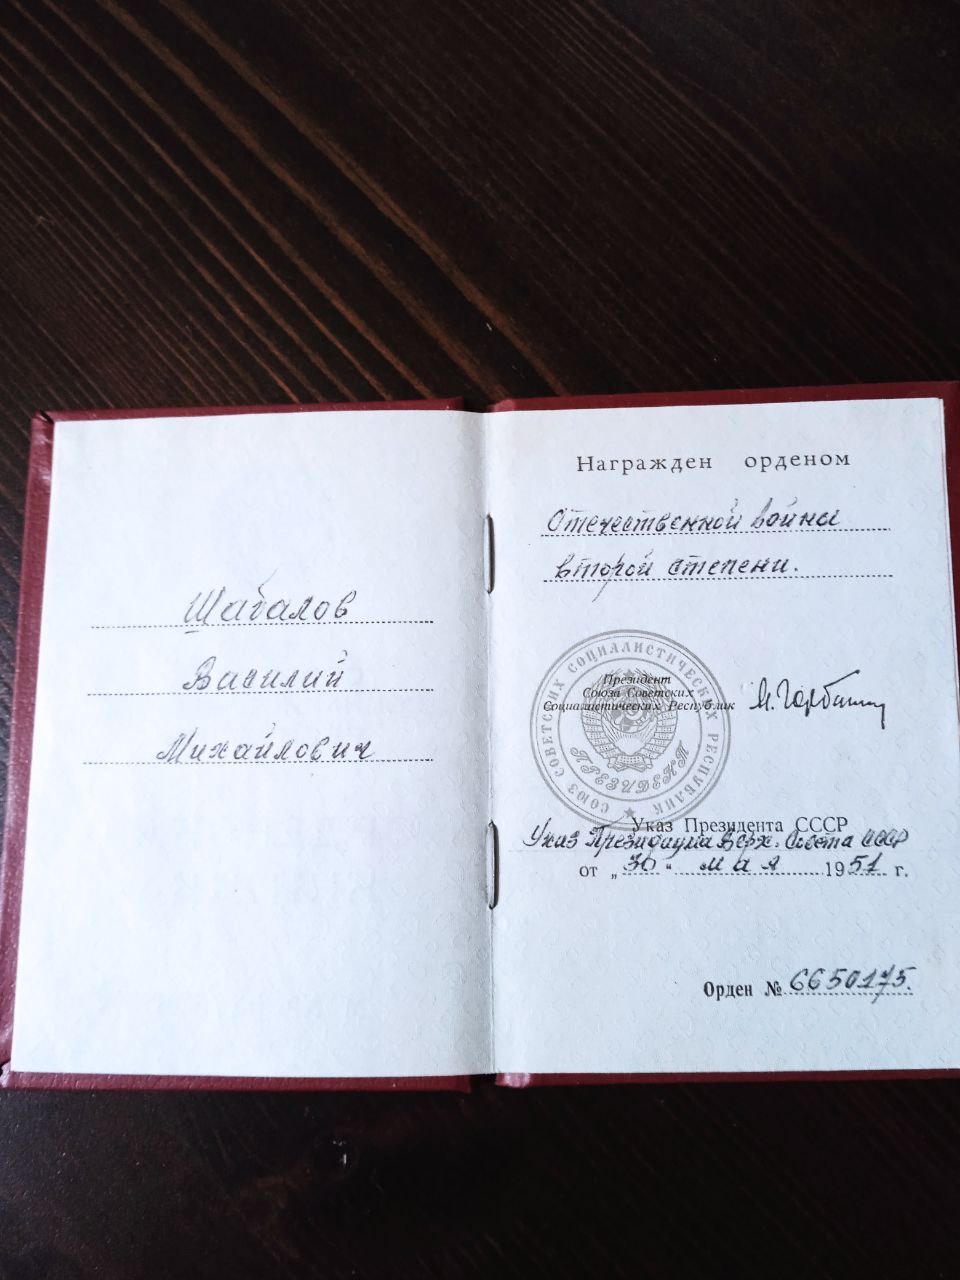 Шабалов
Василий
Михайлович
Награжден орденом
Отечественной войны
второй степени.
СОЮЗ СОВЕТСКИХ СОЦИАЛИСТИЧЕСКИХ РЕСПУБЛИК
Президент
Союза Советских
Социалистических Республик
М. Горбачев
ПРЕЗИДЕНТ
Указ Президента СССР
Указ Президиума Верх. Совета СССР
от „30“ мая 1951 г.
Орден № 6650175.